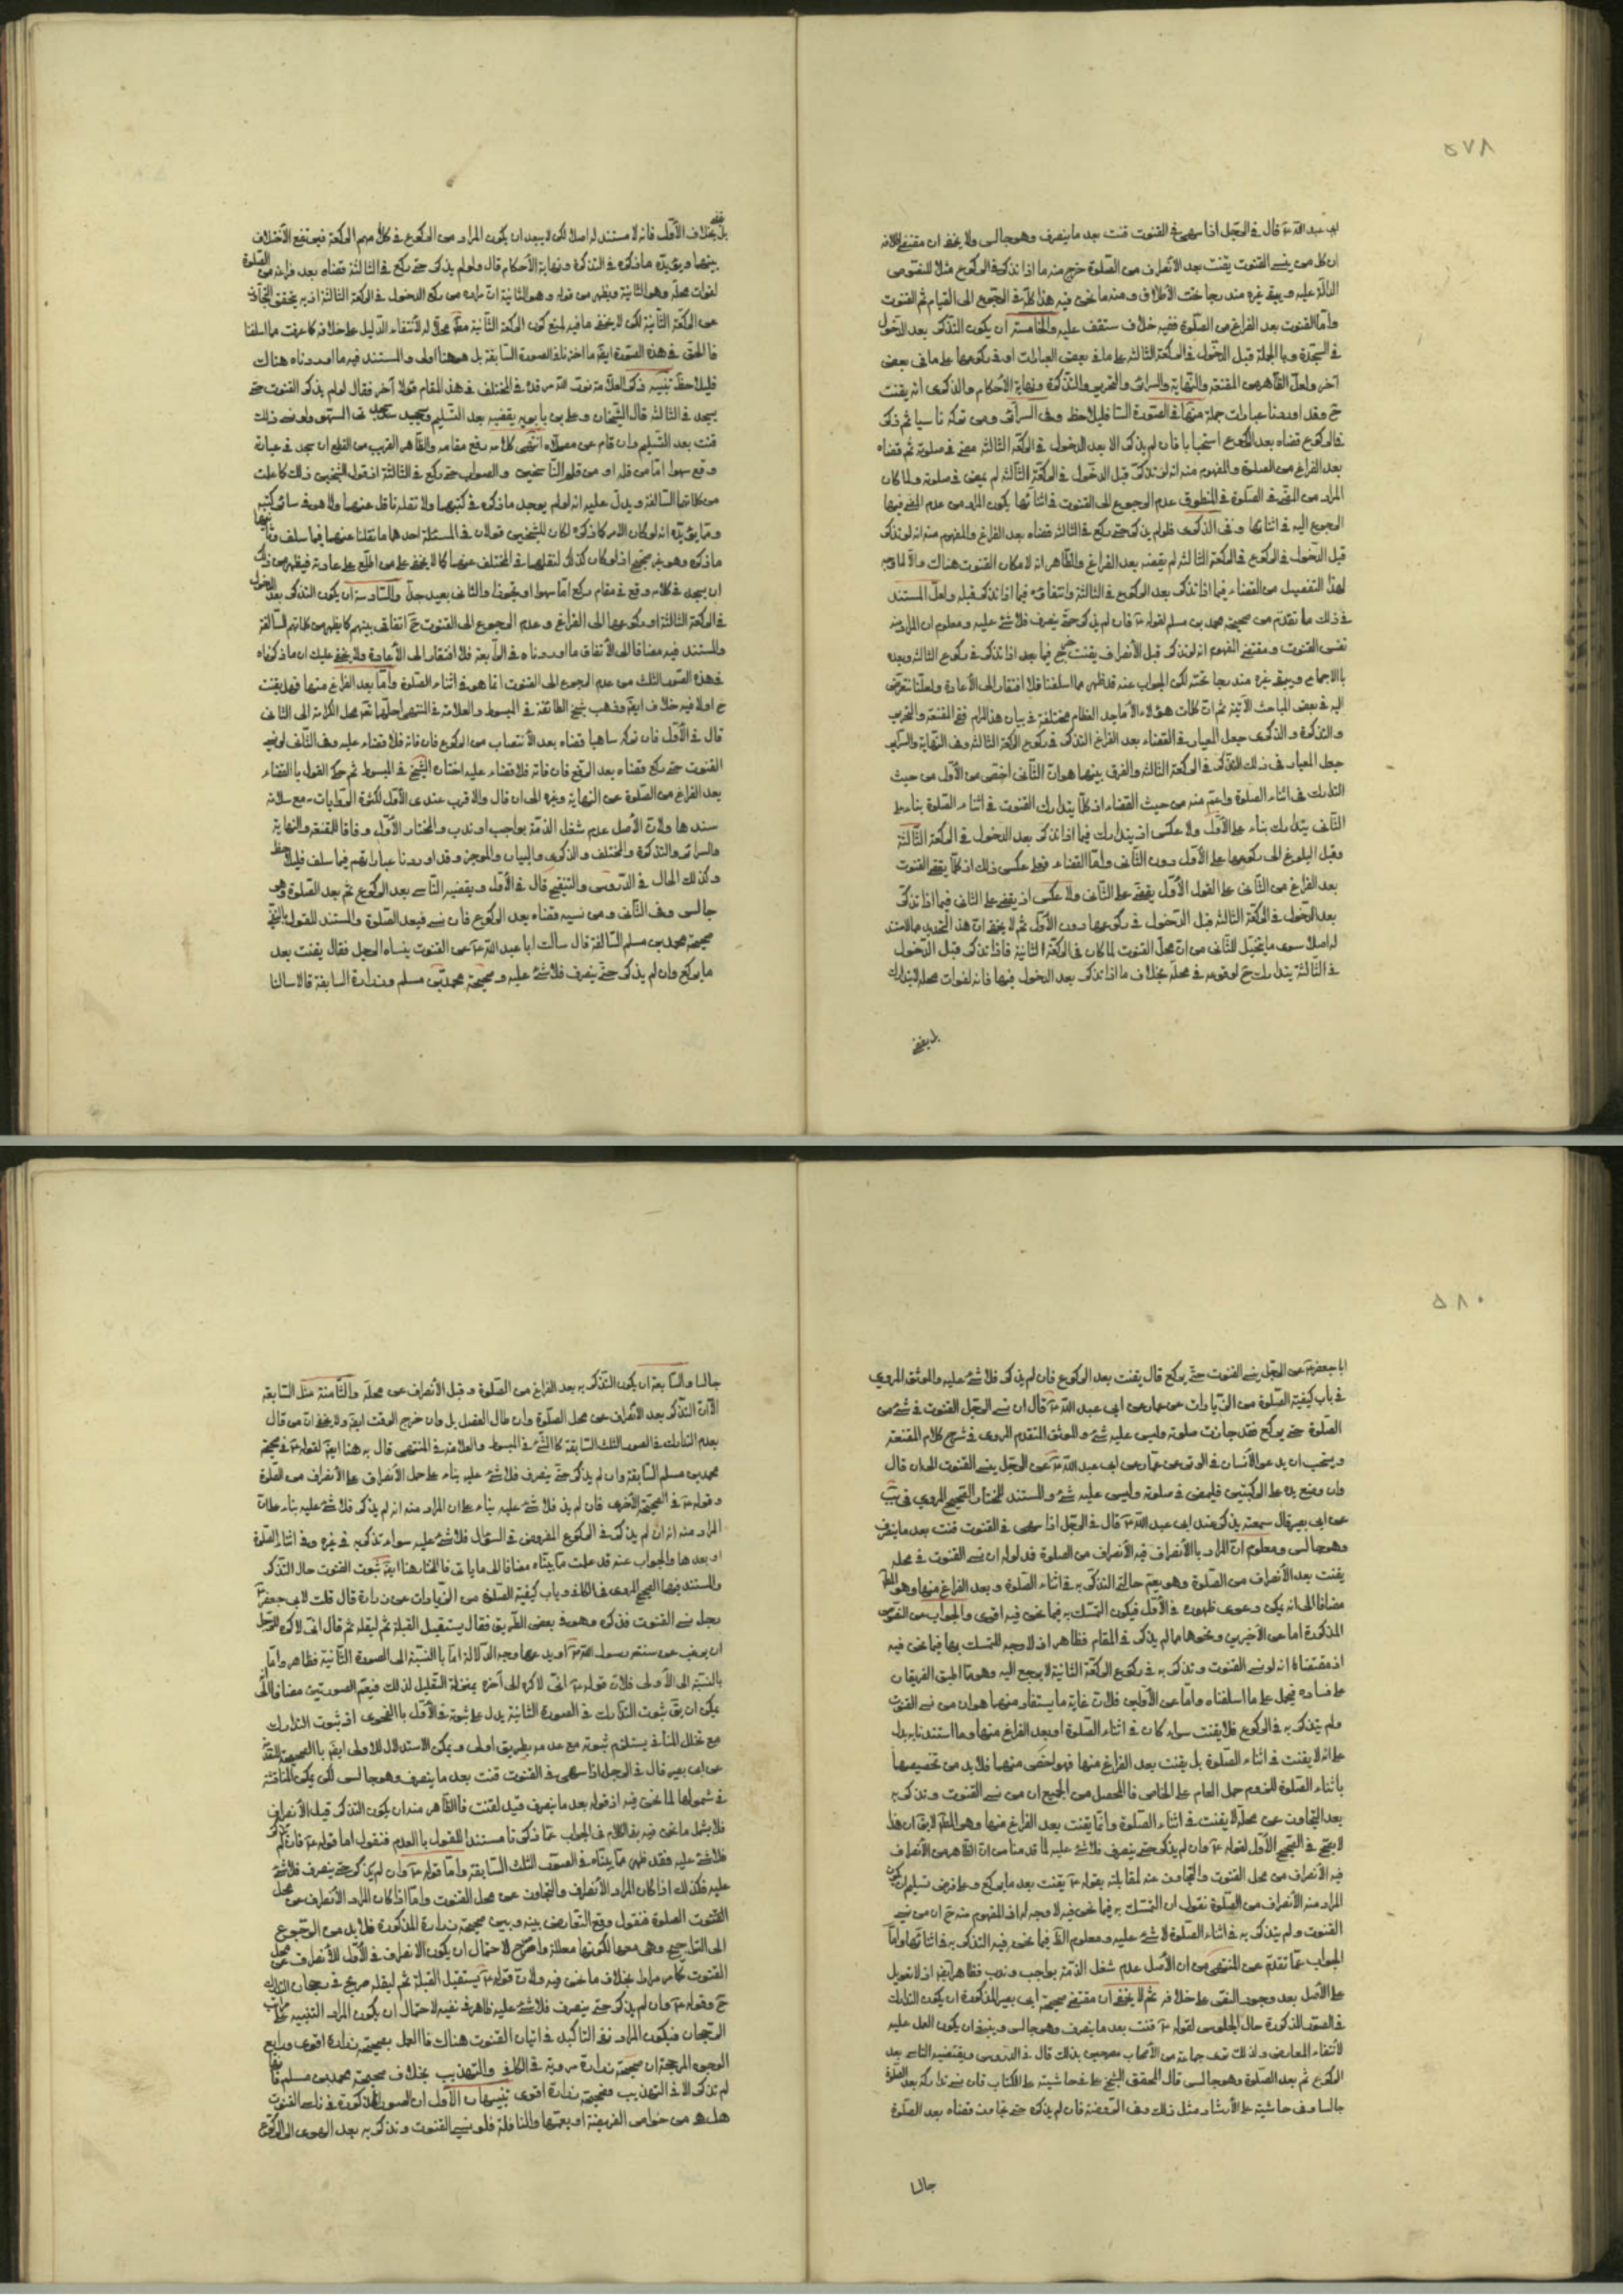 ٥٧٨
ابي عبد الله ع قال في الرجل اذا سهى في القنوت قنت بعد ما ينصرف وهو جالس ولا يخفى ان مقتضى
ان كل من نسى القنوت يقنت بعد الانصراف من الصلوة خرج منه ما اذا تذكر في الركوع مثلا للنصوص
الدالة عليه ويبقى غيره مندرجا تحت الاطلاق ومنه ما نحن فيه هذا كله في الرجوع الى القيام ثم القنوت
واما القنوت بعد الفراغ من الصلوة ففيه خلاف ستقف عليه والخامسة ان يكون التذكر بعد الدخول
في السجدة وبالجملة قبل الدخول في الركعة الثالثة على ما في بعض العبارات او في ركوعها على ما في بعض
آخر ولعل الظاهر من المقنعة والنهاية والسرائر والتحرير والتذكرة ونهاية الاحكام والذكرى انه يقنت
ح وقد اوردنا عبارات جملة منها في الصورة السا فليلاحظ وفي السرائر ومن تركه ناسيا ثم ذكر
في الركوع قضاه بعد الركوع استحبابا فان لم يذكر الا بعد الدخول في الركعة الثالثة مضى في صلوته ثم قضاه
بعد الفراغ من الصلوة والمفهوم منه انه لو تذكر قبل الدخول في الركعة الثالثة لم يمض في صلوته ولما كان
المراد من المضي في الصلوة في المنطوق عدم الرجوع الى القنوت في اثنائها يكون المراد من عدم المضي فيها
الرجوع اليه في اثنائها وفي الذكرى فلو لم يذكر حتى ركع في الثالثة قضاه بعد الفراغ والمفهوم منه انه لو تذكر
قبل الدخول في الركوع في الركعة الثالثة لم يقضه بعد الفراغ والظاهر انه لامكان القنوت هناك والا لما وجه
لهذا التفصيل من القضاء فيما اذا تذكر بعد الركوع في الثالثة وانتفائه فيما اذا تذكر قبله ولعل المستند
في ذلك ما تقدم من صحيحة محمد بن مسلم لقوله ع فان لم يذكر حتى ينصرف فلا شئ عليه ومعلوم ان المراد منه
نفس القنوت ومقتضى المفهوم انه لو تذكر قبل الانصراف يقنت خرج فيما بعد اذا تذكر في ركوع الثالثة وبعده
بالاجماع ويبقى غيره مندرجا تحته لكن الجواب عنه قد ظهر مما اسلفنا فلا افتقار الى الاعادة ولعلنا نتعرض
اليه في بعض المباحث الآتية ثم ان كلمات هؤلاء الاماجد العظام مختلفة في بيان هذا المرام ففي المقنعة والتحرير
والتذكرة والذكرى جعل المعيار في القضاء بعد الفراغ التذكر في ركوع الركعة الثالثة وفي النهاية والسرائر
جعل المعيار في ذلك التذكر في الركعة الثالثة والفرق بينهما هو ان الثاني اخص من الاول من حيث
التدارك في اثناء الصلوة واعم منه من حيث القضاء اذ كلما يتدارك القنوت في اثناء الصلوة بناء على
الثاني يتدارك بناء على الاول ولا عكس اذ يتدارك فيما اذا تذكر بعد الدخول في الركعة الثالثة
وقبل البلوغ الى ركوعها على الاول دون الثاني واما القضاء فعلى عكس ذلك اذ كلما يقضى القنوت
بعد الفراغ من الثاني على القول الاول يقضى على الثاني ولا عكس اذ يقضى على الثاني فيما اذا تذكر
بعد الدخول في الركعة الثالثة قبل الدخول في ركوعها دون الاول ثم لا يخفى ان هذا التحديد مما لا مستند
له اصلا سوى ما يتخيل للثاني من ان محل القنوت لما كان في الركعة الثانية فاذا تذكر قبل الدخول
في الثالثة يتدارك ح لوقوعه في محله بخلاف ما اذا تذكر بعد الدخول فيها فانه لفوات محله لا يتدارك
بل يقضى
بل يقضى بخلاف الاول فانه لا مستند له اصلا لكن لا يبعد ان يكون المراد من الركوع في كلامهم الركعة فيرتفع الاختلاف
بينها ويؤيده ما ذكره في التذكرة ونهاية الاحكام قال ولو لم يذكر حتى ركع في الثالثة قضاه بعد فراغه من الصلوة
لفوات محله وهو الثانية ويظهر من قوله وهو الثانية ان مراده من ركع الدخول في الركعة الثالثة اذ به يتحقق التجاوز
عن الركعة الثانية لكن لا يخفى ما فيه لمنع كون الركعة الثانية مطلقا محلا له لانتفاء الدليل على خلافه كما عرفت مما اسلفنا
فالحق في هذه الصورة ايضا ما اخترناه في الصورة السابقة بل هو هنا اولى والمستند فيه ما اوردناه هناك
فليلاحظ تنبيه ذكر العلامة نور الله مرقده في المختلف في هذا المقام قولا آخر فقال لو لم يذكر القنوت حتى
يسجد في الثالثة قال الشيخان وعلي بن بابويه يقضيه بعد التسليم ويسجد سجدتي السهو ولو نسى ذلك
قنت بعد التسليم وان قام عن مصلاه انتهى كلامه رفع مقامه والظاهر القريب من القطع ان سجد في عبارته
وقع سهوا اما من قلمه او من قلم الناسخين والصواب حتى ركع في الثالثة اذ قول الشيخين ذلك كما علمت
من كلامهما السالفة ويدل عليه انه لو لم يوجد ما ذكره في كتبهما ولا نقله ناقل عنهما ولا هو في سائر كتبه
ومما يؤيده انه لو كان الامر كما ذكره لكان للشيخين قولان في المسئلة احدهما ما نقلنا عنهما فيما سلف وثانيهما
ما ذكره وهو غير صحيح اذ لو كان كذلك لنقلهما في المختلف عنهما كما لا يخفى على من اطلع على عادته فيظهر من ذلك
ان يسجد في كلامه وقع في مقام ركع اما سهوا او تجوزا والثاني بعيد جدا والسادسة ان يكون التذكر بعد الدخول
في الركعة الثالثة او ركوعها الى الفراغ وعدم الرجوع الى القنوت ح اتفاقي بينهم كما يظهر من كلماتهم السالفة
والمستند فيه مضافا الى الاتفاق ما اوردناه في الرابعة فلا افتقار الى الاعادة ولا يخفى عليك ان ما ذكرناه
في هذه الصور الثلث من عدم الرجوع الى القنوت انما هو في اثناء الصلوة واما بعد الفراغ منها فهل يقنت
ح اولا فيه خلاف ايضا وذهب شيخ الطائفة في المبسوط والعلامة في المنتهى احلهما الله محل الكرامة الى الثاني
قال في الاول فان تركه ساهيا قضاه بعد الانتصاب من الركوع فان فاته فلا قضاء عليه وفي الثاني لو نسى
القنوت حتى ركع قضاه بعد الرفع فان فاته فلا قضاء عليه اختاره الشيخ في المبسوط ثم حكى القول بالقضاء
بعد الفراغ من الصلوة عن النهاية وغيره الى ان قال والاقرب عندي الاول لكثرة الروايات مع سلامة
سندها ولان الاصل عدم شغل الذمة بواجب او ندب والمختار الاول وفاقا للمقنعة والنهاية
والسرائر والتذكرة والمختلف والذكرى والبيان والموجز وقد اوردنا عباراتهم فيما سلف فليلاحظ
وكذلك الحال في الدروس والتنقيح قال في الاول ويقضيه الناسي بعد الركوع ثم بعد الصلوة وهو
جالس وفي الثاني ومن نسيه قضاه بعد الركوع فان نسى فبعد الصلوة والمستند للقول بالنفي
صحيحة محمد بن مسلم السالفة قال سألت ابا عبد الله ع عن القنوت ينساه الرجل فقال يقنت بعد
ما يركع وان لم يذكر حتى ينصرف فلا شئ عليه وصحيحة محمد بن مسلم وزرارة السابقة قالا سالنا
٥٨٠
ابا جعفر ع عن الرجل ينسى القنوت حتى يركع قال يقنت بعد الركوع فان لم يذكر فلا شئ عليه والموثق المروي
في باب كيفية الصلوة من الزيادات عن عمار عن ابي عبد الله ع قال ان نسى الرجل القنوت في شئ من
الصلوة حتى يركع فقد جازت صلوته وليس عليه شئ والموثق المتقدم المروي في شرح كلام المقنعة
ويستحب ان يدعو الانسان في الوتر عن عمار عن ابي عبد الله ع عن الرجل ينسى القنوت الى ان قال
وان وضع يده على الركبتين فليمض في صلوته وليس عليه شئ والمستند للمختار الصحيح المروي في يب
عن ابي بصير قال سمعته يذكر عند ابي عبد الله ع قال في الرجل اذا سهى في القنوت قنت بعد ما ينصرف
وهو جالس ومعلوم ان المراد بالانصراف فيه الانصراف من الصلوة فمدلوله ان نسى القنوت في محله
يقنت بعد الانصراف من الصلوة وهو يعم حالتي التذكر به في اثناء الصلوة وبعد الفراغ منها وهو المط
مضافا الى انه يمكن دعوى ظهوره في الاول فيكون التمسك به فيما نحن فيه اقوى والجواب عن النصوص
المذكورة اما عن الاخيرين ونحوهما مما لم يذكر في المقام فظاهر اذ لا وجه للتمسك بها فيما نحن فيه
اذ مقتضاه انه لو نسى القنوت وتذكر به في ركوع الركعة الثانية لا يرجع اليه وهو مما اطبق الفريقان
على فساده فيحمل على ما اسلفناه واما عن الاولين فلان غاية ما يستفاد منهما هو ان من نسى القنوت
ولم يتذكر به في الركوع فلا يقنت سواء كان في اثناء الصلوة او بعد الفراغ منها وما استندنا به يدل
على انه لا يقنت في اثناء الصلوة بل يقنت بعد الفراغ منها فهو اخص منهما فلا بد من تخصيصهما
باثناء الصلوة للزوم حمل العام على الخاص فالمحصل من الجميع ان من نسى القنوت وتذكر به
بعد التجاوز عن محله لا يقنت في اثناء الصلوة وانما يقنت بعد الفراغ منها وهو المط لا يق ان هذا
لا يصح في الصحيح الاول لقوله ع وان لم يذكر حتى ينصرف فلا شئ عليه لما قدمنا من ان الظاهر من الانصراف
فيه الانصراف من محل القنوت والتجاوز عنه لمقابلته بقوله ع يقنت بعد ما يركع وعلى فرض تسليم ان يكون
المراد منه الانصراف من الصلوة نقول ان التمسك به فيما نحن فيه لا وجه له اذ المفهوم منه ح ان من نسى
القنوت ولم يتذكر به في اثناء الصلوة لا شئ عليه ومعلوم ان فيما نحن فيه التذكر به في اثنائها واما
الجواب عما تقدم عن المنتهى من ان الاصل عدم شغل الذمة بواجب وندب فظاهر ايضا اذ لا تعويل
على الاصل بعد وجود النص على خلافه ثم لا يخفى ان مقتضى صحيحة ابي بصير المذكورة ان يكون التدارك
في الصور المذكورة حال الجلوس لقوله ع قنت بعد ما ينصرف وهو جالس وينبغي ان يكون العمل عليه
لانتفاء المعارض ولذلك ترى جماعة من الاصحاب مصرحين بذلك قال في الدروس ويقضيه الناسي بعد
الركوع ثم بعد الصلوة وهو جالس قال المحقق الشيخ علي في حاشيته على الكتاب فان نسى تداركه بعد الصلوة
جالسا وفي حاشية على الارشاد مثل ذلك وفي الروضة فان لم يذكره حتى تجاوز قضاه بعد الصلوة
جالسا
جالسا والسابعة ان يكون التذكر به بعد الفراغ من الصلوة وقبل الانصراف عن محله والثامنة مثل السابقة
الا ان التذكر بعد الانصراف عن محل الصلوة وان طال الفصل بل وان خرج الوقت ايضا ولا يخفى ان من قال
بعدم التدارك في الصور الثلث السابقة كالشيخ في المبسوط والعلامة في المنتهى قال به هنا ايضا لقوله ع في صحيحة
محمد بن مسلم السابقة وان لم يذكر حتى ينصرف فلا شئ عليه بناء على حمل الانصراف على الانصراف من الصلوة
وقوله ع في الصحيحة الاخرى فان لم يذكر فلا شئ عليه بناء على ان المراد منه انه لم يذكر فلا شئ عليه بناء على ان
المراد منه انه ان لم يذكر في الركوع المفروض في السؤال فلا شئ عليه سواء تذكر به في غيره وفي اثناء الصلوة
او بعدها والجواب عنه قد علمت مما بيناه مضافا الى ما ياتي فالمختار هنا ايضا ثبوت القنوت حال التذكر
والمستند فيهما الصحيح المروي في الكافي وباب كيفية الصلوة من الزيادات عن زرارة قال قلت لابي جعفر ع
رجل نسى القنوت فذكره وهو في بعض الطريق فقال يستقبل القبلة ثم ليقله ثم قال اني لاكره للرجل
ان يرغب عن سنة رسول الله ص او يدعها وجه الدلالة اما بالنسبة الى الصورة الثانية فظاهر واما
بالنسبة الى الاولى فلان قوله ع اني لاكره الى آخره بمنزلة التعليل لذلك فيعم الصورتين مضافا الى
يمكن ان يق ثبوت التدارك في الصورة الثانية يدل على ثبوته في الاول بالفحوى اذ ثبوت التدارك
مع تخلل المنافي يستلزم ثبوته مع عدمه بطريق اولى ويمكن الاستدلال للاولى ايضا بالصحيحة المتقدمة
عن ابي بصير قال في الرجل اذا سهى في القنوت قنت بعد ما ينصرف وهو جالس لكن يمكن المناقشة
في شمولها لما نحن فيه اذ قوله بعد ما ينصرف قيد لقنت فالظاهر منه ان يكون التذكر قبل الانصراف
فلا يشمل ما نحن فيه بقى الكلام في الجواب عما ذكرنا مستندا للقول بالعدم فنقول اما قوله ع فان لم يذكر
فلا شئ عليه فقد ظهر مما بيناه في الصور الثلث السابقة واما قوله ع وان لم يذكر حتى ينصرف فلا شئ
عليه فكذلك اذا كان المراد الانصراف والتجاوز عن محل القنوت واما اذا كان المراد الانصراف عن محل
الصلوة فنقول وقع التعارض بينه وبين صحيحة زرارة المذكورة فلا بد من الرجوع
الى الترجيح وهو معها لكونها معللة واصرح لاحتمال ان يكون الانصراف في الاول للانصراف عن محل
القنوت كما مر مرارا بخلاف ما نحن فيه ولان قوله ع يستقبل القبلة ثم ليقله صريح في رجحان التدارك
ح وقوله ع وان لم يذكر حتى ينصرف فلا شئ عليه ظاهر في نفيه لاحتمال ان يكون المراد التنبيه على
الرجحان فيكون المراد نفي التاكيد في اتيان القنوت هناك فالعمل بصحيحة زرارة اقوى ورابع
الوجوه المرجحة ان صحيحة زرارة مروية في الكافي والتهذيب بخلاف صحيحة محمد بن مسلم فانها
لم تذكر الا في التهذيب فصحيحة زرارة اقوى تنبيهات الاول ان الصور المذكورة في ناسي القنوت
هل هو من خواص الفريضة او يعمها والنافلة فلو نسى القنوت وتذكر به بعد الهوى الى الركوع